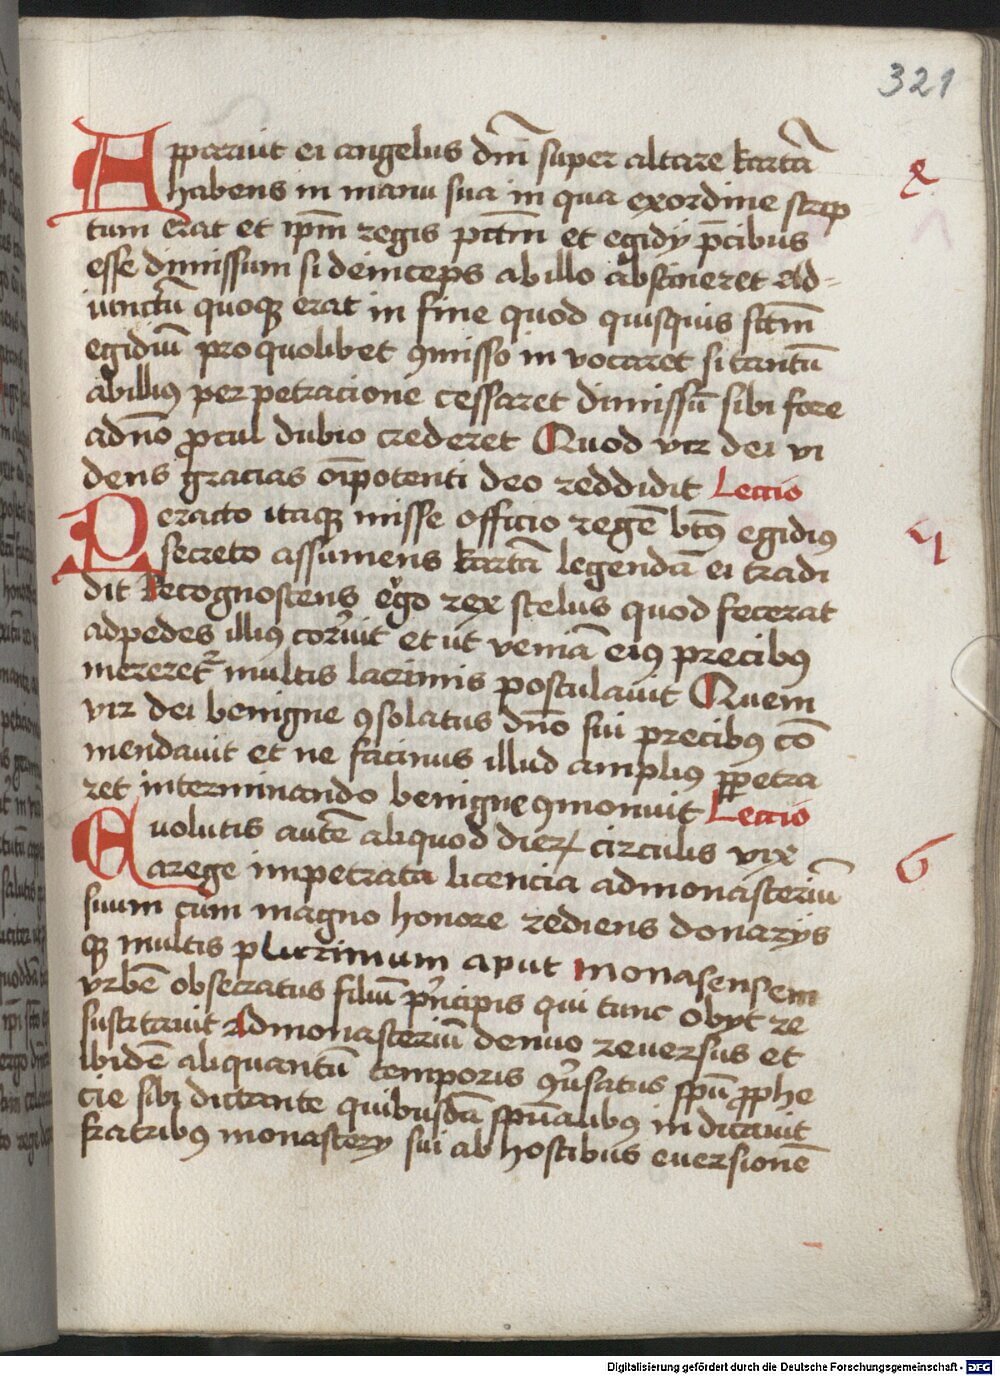 321
Apparuit ei angelus dn̄i super altare kartā
habens in manu sua in qua exordine scrip
tum erat et ip̄m regis pctm̄ et egidy p̄cibus
esse dimissum si deinceps ab illo abstineret Ad-
iunctū quoqꝫ erat in fine quod quisquis sctm̄
egidiū pro quolibet ꝯmisso in vocaret si tantū
abilliꝰ perpetracione cessaret dimissū sibi fore
adn̄o ꝓcul dubio crederet Quod vir dei vi
dens gracias oīpotenti deo reddidit Lectio
Peracto itaqꝫ misse officio regē btūs egidiꝰ
secreto assumens kartā legendā ei tradi
dit Recognoscens ergo rex scelus quod fecerat
adpedes illiꝰ corruit et ut veniā eiꝰ precibꝰ
mereret᷑ multis lacrimis postulauit Quem
vir dei benigne ꝯsolatus dn̄o sui precibꝰ cō
mendauit et ne facinus illud ampliꝰ ꝑpetra
ret interminando benigne ꝯmonuit Lectio
Euolutis autē aliquod dieꝝ circulis vix
a rege impetrata licencia admonasteriū
suum cum magno honore rediens donarys
qꝫ multis plurimum aput monasensem
vrbē obsecratus filiū prīcipis qui tunc obyt re
suscitauit Admonasteriū denuo reuersus et
ibidē aliquantū temporis ꝯuersatus sp̄u ꝓphe
cie sibi dictante quibusdā sp̄ualibꝰ indicauit
fratribꝰ monastery sui ab hostibus euersionē
6
Digitalisierung gefördert durch die Deutsche Forschungsgemeinschaft - DFG